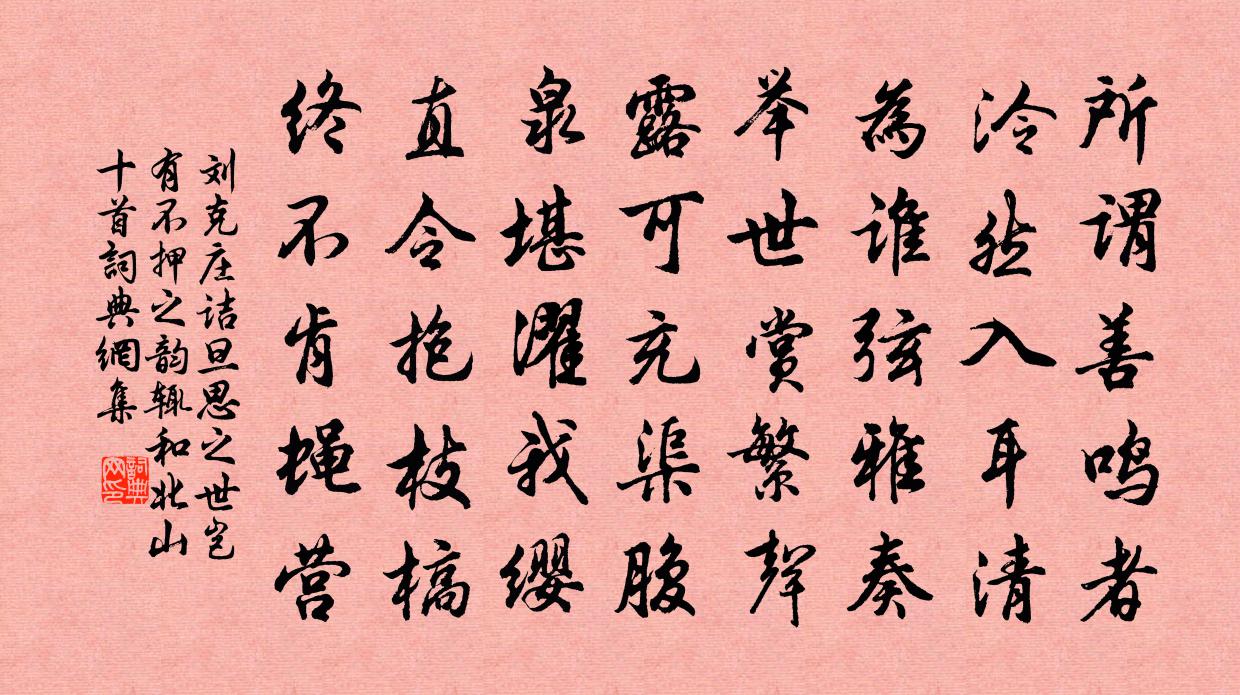 所谓善鸣者
泠然入耳清
為谁弦雅奏
举世赏繁声
露可充渠腹
泉堪濯我缨
直令抱枝槁
终不肯蝇营
刘克庄诘旦思之世岂
有不押之韵辄和北山
十首詞典網集
詞典
网印